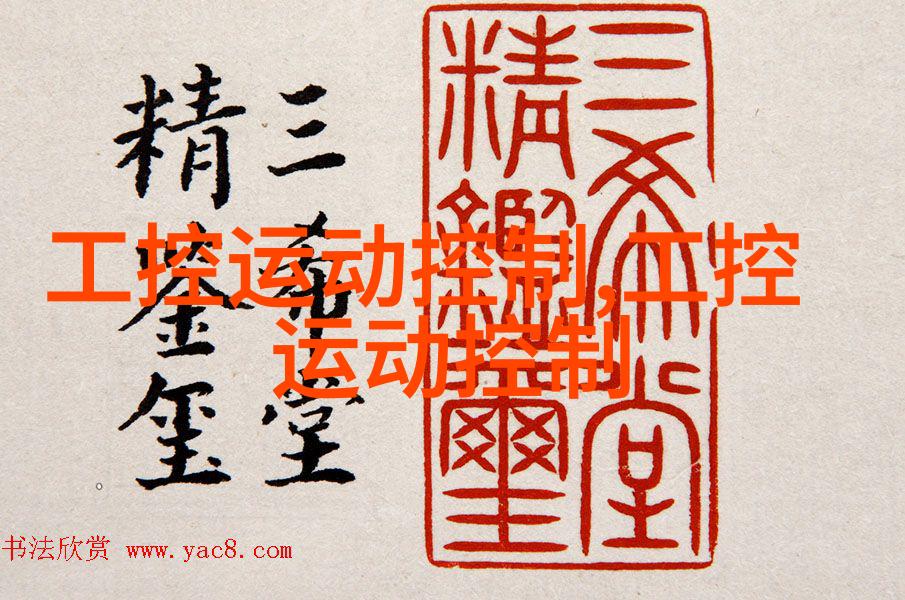 三希堂
精鉴玺
三希堂
精鑑璽
工控运动控制,工控
运动控制
书法欣赏 www.yac8.com